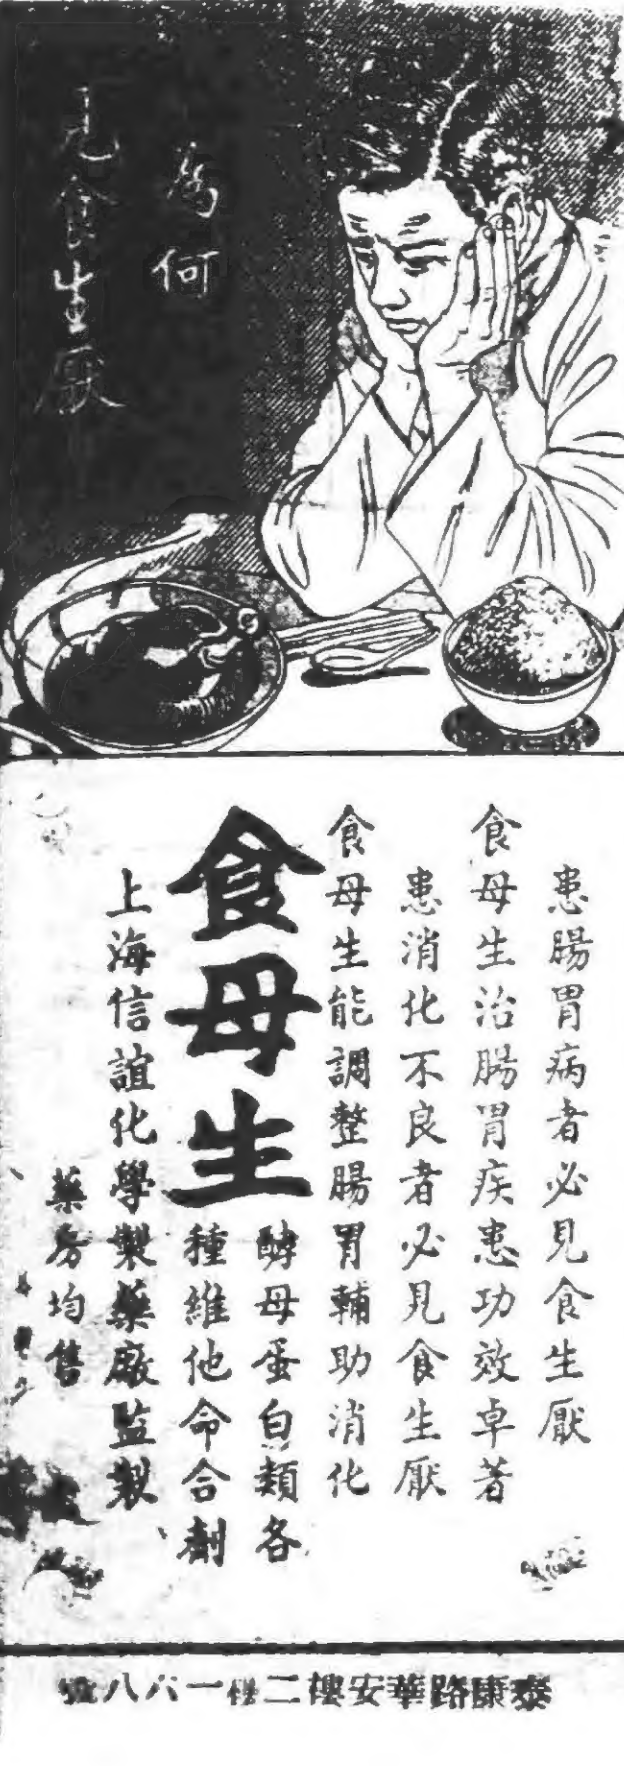 為何
見食生厭
患腸胃病者必見食生厭
食母生治腸胃疾患功效卓著
患消化不良者必見食生厭
食母生能調整腸胃輔助消化
食母生
酵母蛋白類各
種維他命合劑
上海信誼化學製藥廠監製
藥房均售
泰康路華安樓二樓一六八號